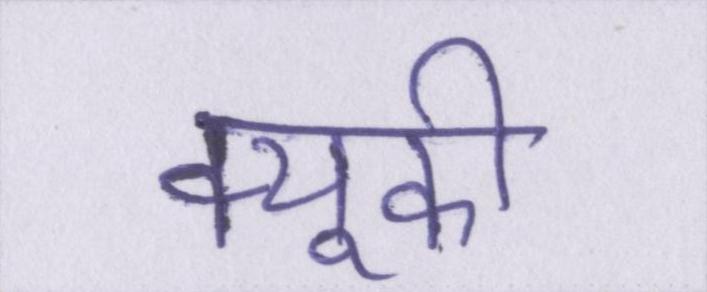 क्यूकी